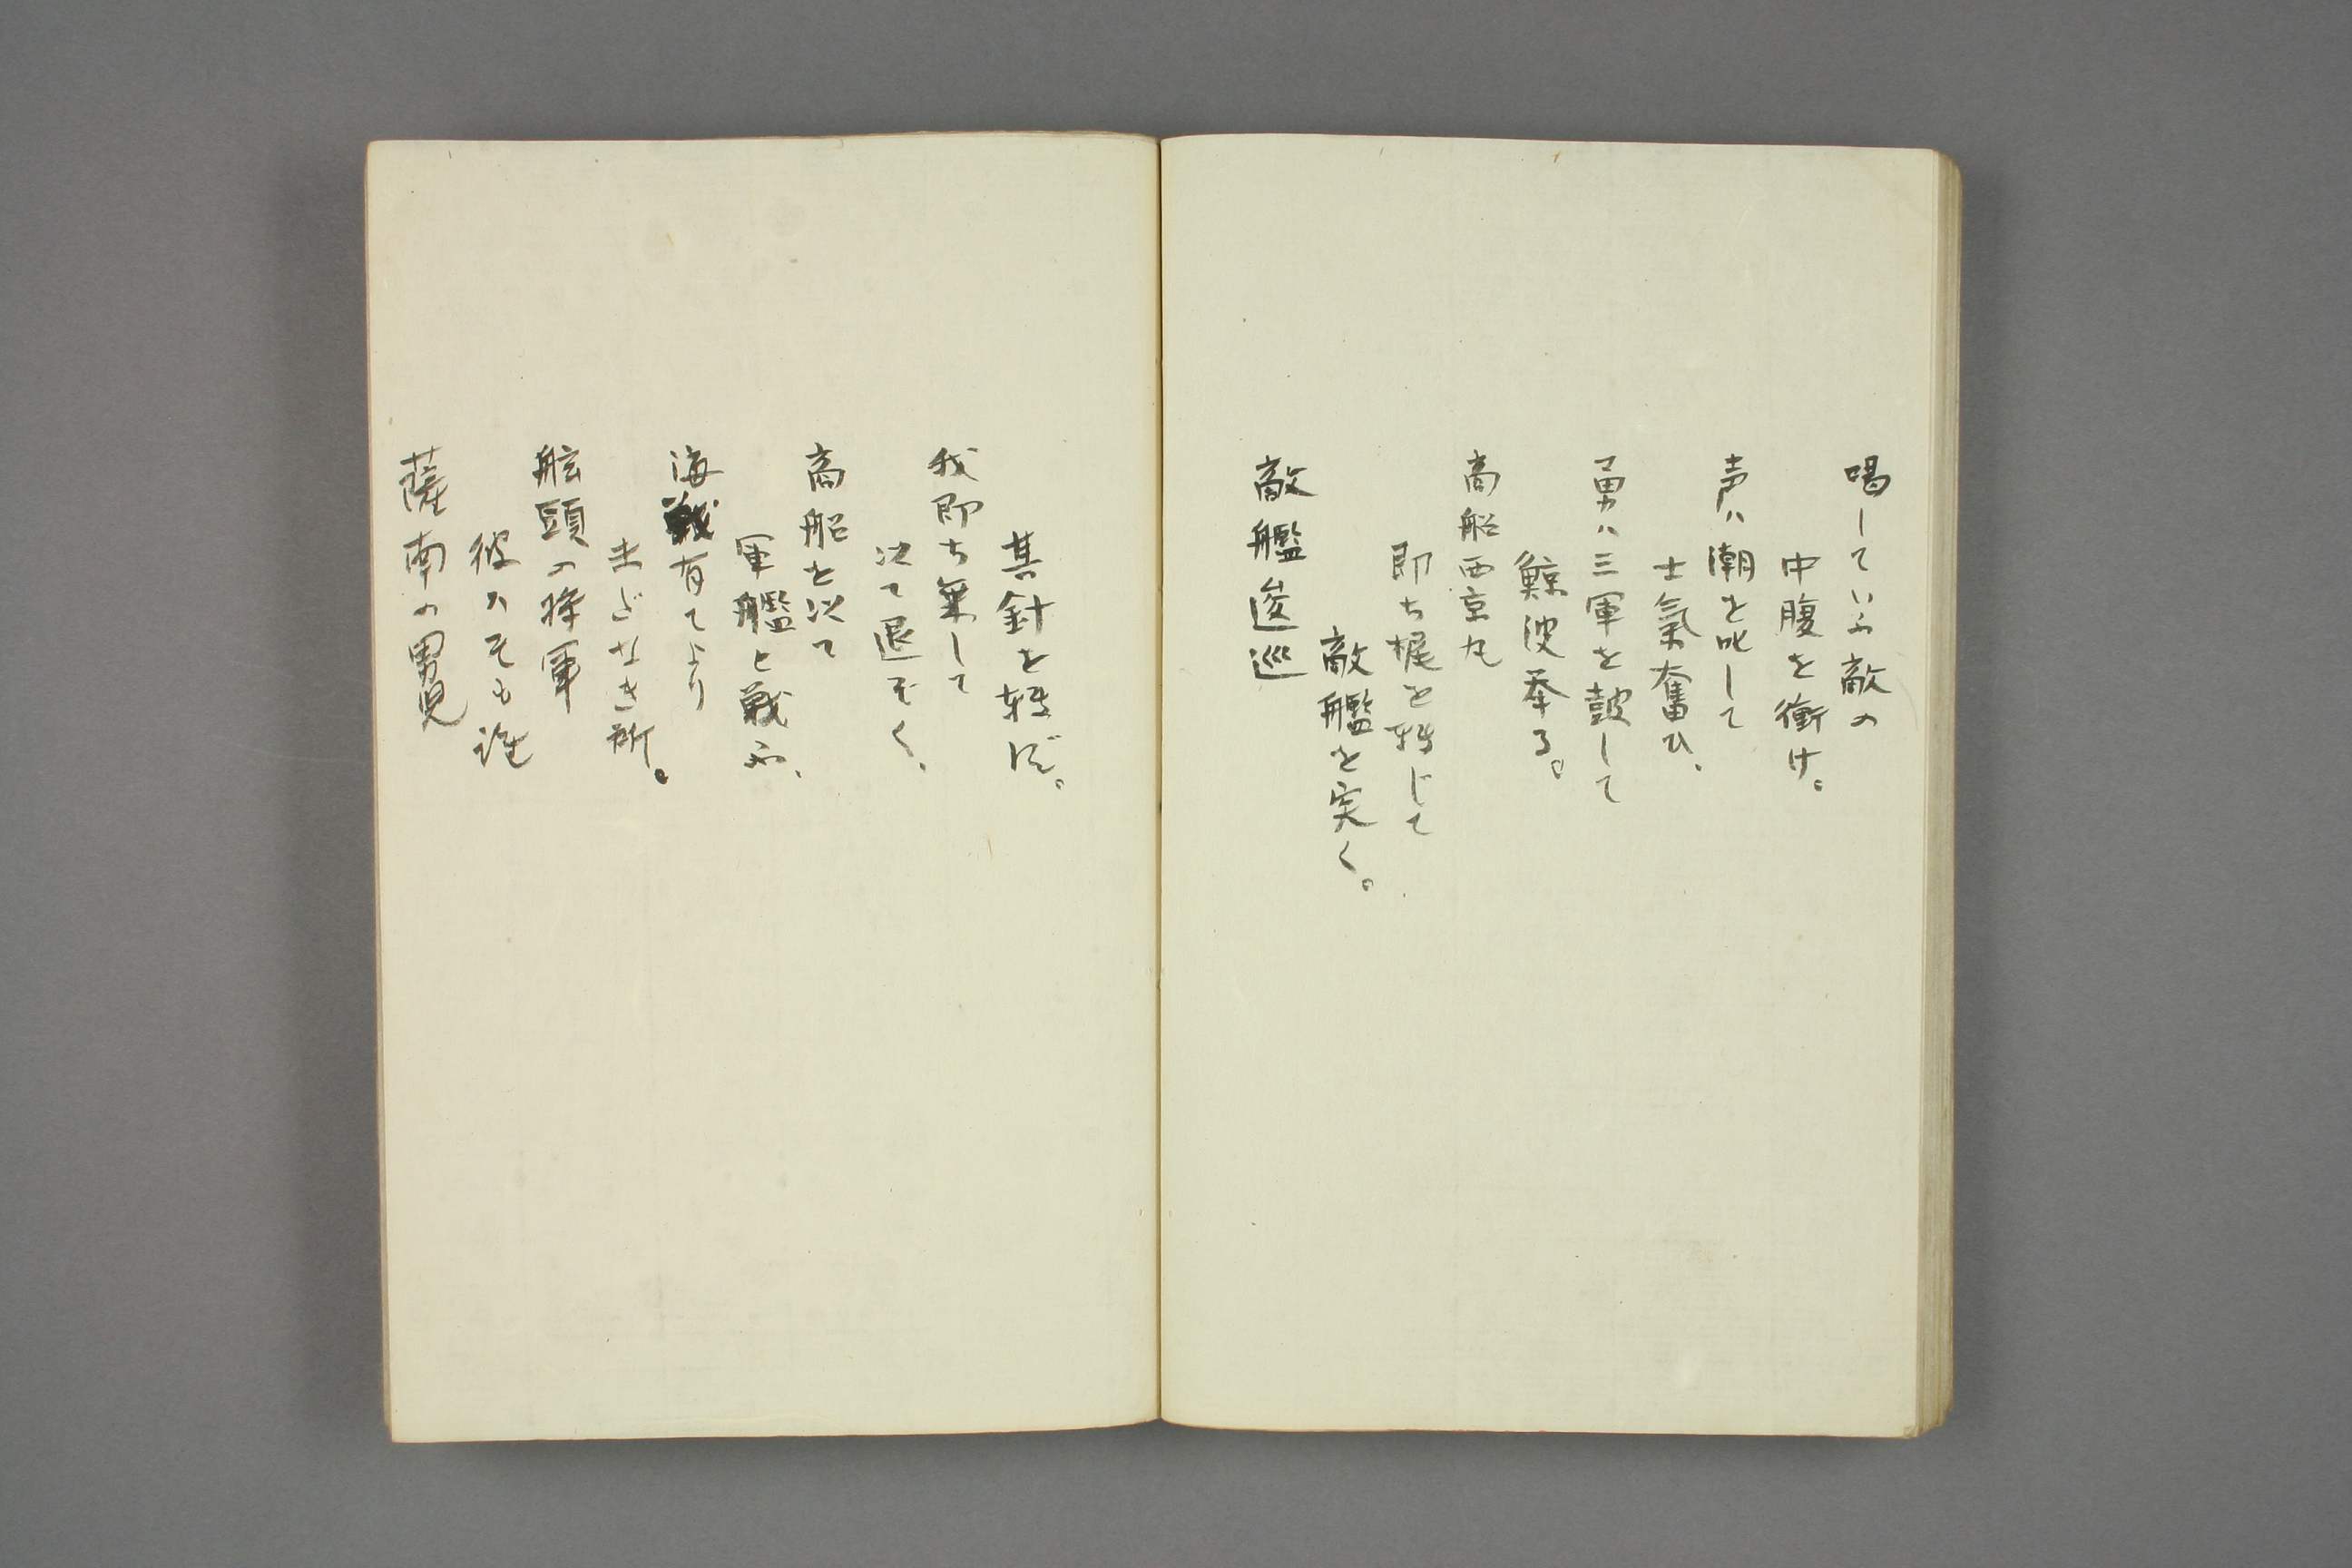 喝していふ敵の
中腹を衝け。
声ハ潮を叱して
士氣奮ひ、
勇ハ三軍を鼓して
鯨波挙る。
商船西京丸
即ち梶を転じて
敵艦を突く。
敵艦逡巡
其針を転ず。
我即ち乗して
決て退ぞく、
商船を以て
軍艦と戦ふ、
海戦有てより
未ど なき所。
舷頭の将軍
彼ハそも誰
薩南の男児